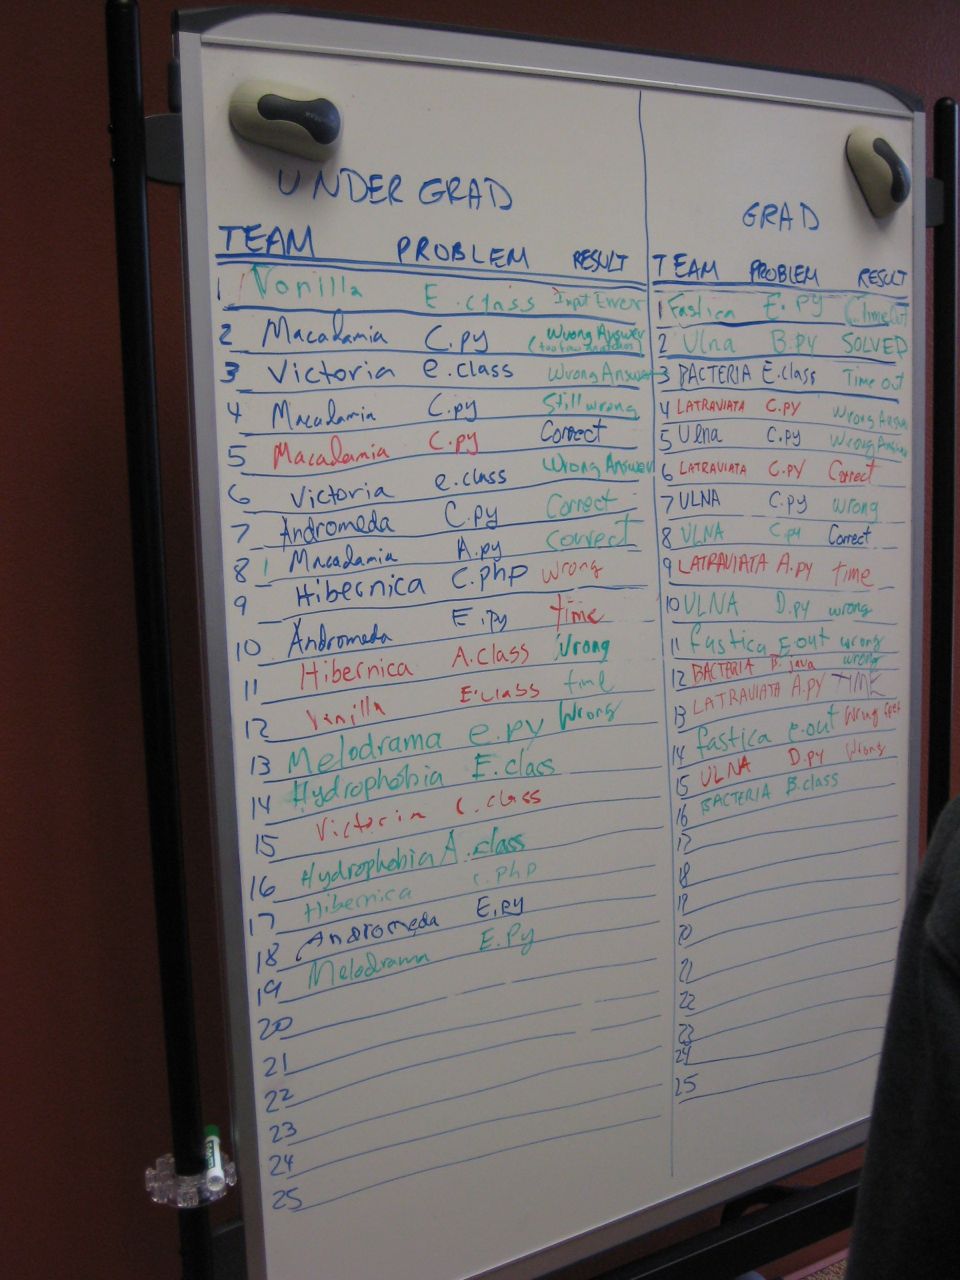 UNDERGRAD
TEAM PROBLEM RESULT
1 Vanilla E.class Input Error
2 Macadamia C.py Wrong Answer
(too few matches)
3 Victoria e.class Wrong Answer
4 Macadamia C.py Still wrong
5 Macadamia C.py Correct
6 Victoria e.class Wrong Answer
7 Andromeda C.py Correct
8 Macadamia A.py correct
9 Hibernica C.php wrong
10 Andromeda E.py time
11 Hibernica A.class Wrong
12 Vanilla E.class time
13 Melodrama e.py Wrong
14 Hydrophobia E.class
15 Victoria C.class
16 Hydrophobia A.class
17 Hibernica C.php
18 Andromeda E.py
19 Melodrama E.Py
20
21
22
23
24
25
GRAD
TEAM PROBLEM RESULT
1 Fastica E.py Time Out
2 Ulna B.py SOLVED
3 BACTERIA E.class Time out
4 LATRAVIATA C.PY Wrong Answer
5 Ulna C.py Wrong Answer
6 LATRAVIATA C.PY Correct
7 ULNA C.py wrong
8 ULNA C.py Correct
9 LATRAVIATA A.py time
10 ULNA D.py wrong
11 fastica E.out wrong
12 BACTERIA B.java wrong
13 LATRAVIATA A.PY TIME
14 fastica e.out Wrong
15 ULNA D.py Wrong
16 BACTERIA B.class
17
18
19
20
21
22
23
24
25